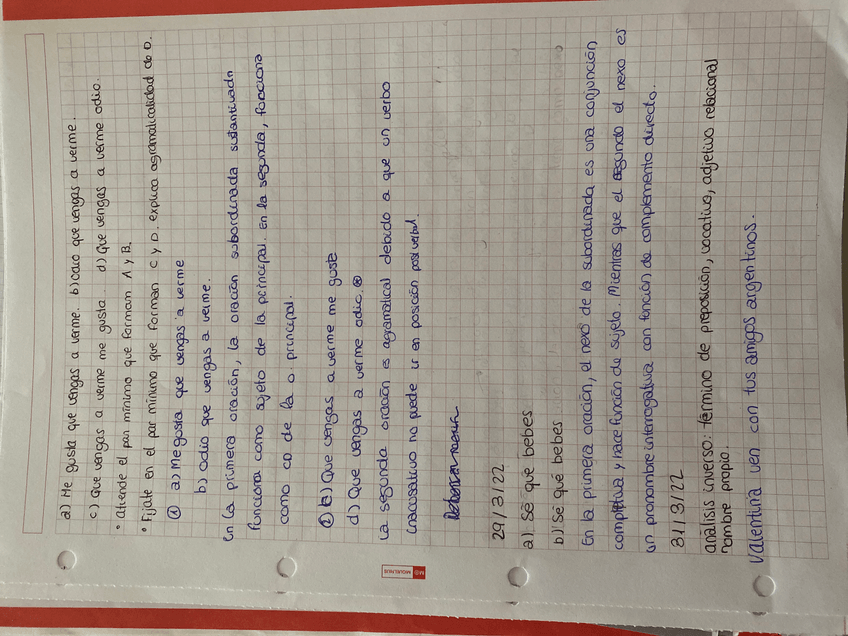 a) Me gusta que vengas a verme. b) Odio que vengas a verme.
c) Que vengas a verme me gusta. d) Que vengas a verme odio.
• Atiende el par mínimo que forman A y B.
• Fíjate en el par mínimo que forman C y D. explica agramaticalidad de D.
① a) Me gusta que vengas a verme
b) odio que vengas a verme.
En la primera oración, la oración subordinada sustantivada
funciona como sujeto de la principal. En la segunda, funciona
como CD de la o. principal.
② Que vengas a verme me gusta
d) Que vengas a verme odio. ⊗
La segunda oración es agramatical debido a que un verbo
no puede ir en posición
29/3/22
a) Sé que bebes
b) Sé qué bebes
En la primera oración, el nexo de la subordinada es una conjunción
completiva y hace función de sujeto. Mientras que el segundo el nexo es
un pronombre interrogativa con función de complemento directo.
31/3/22
análisis inverso: término de preposición, vocativo, adjetivo relacional
nombre propio.
Valentina ven con tus amigos argentinos.
MIQUELRIUS